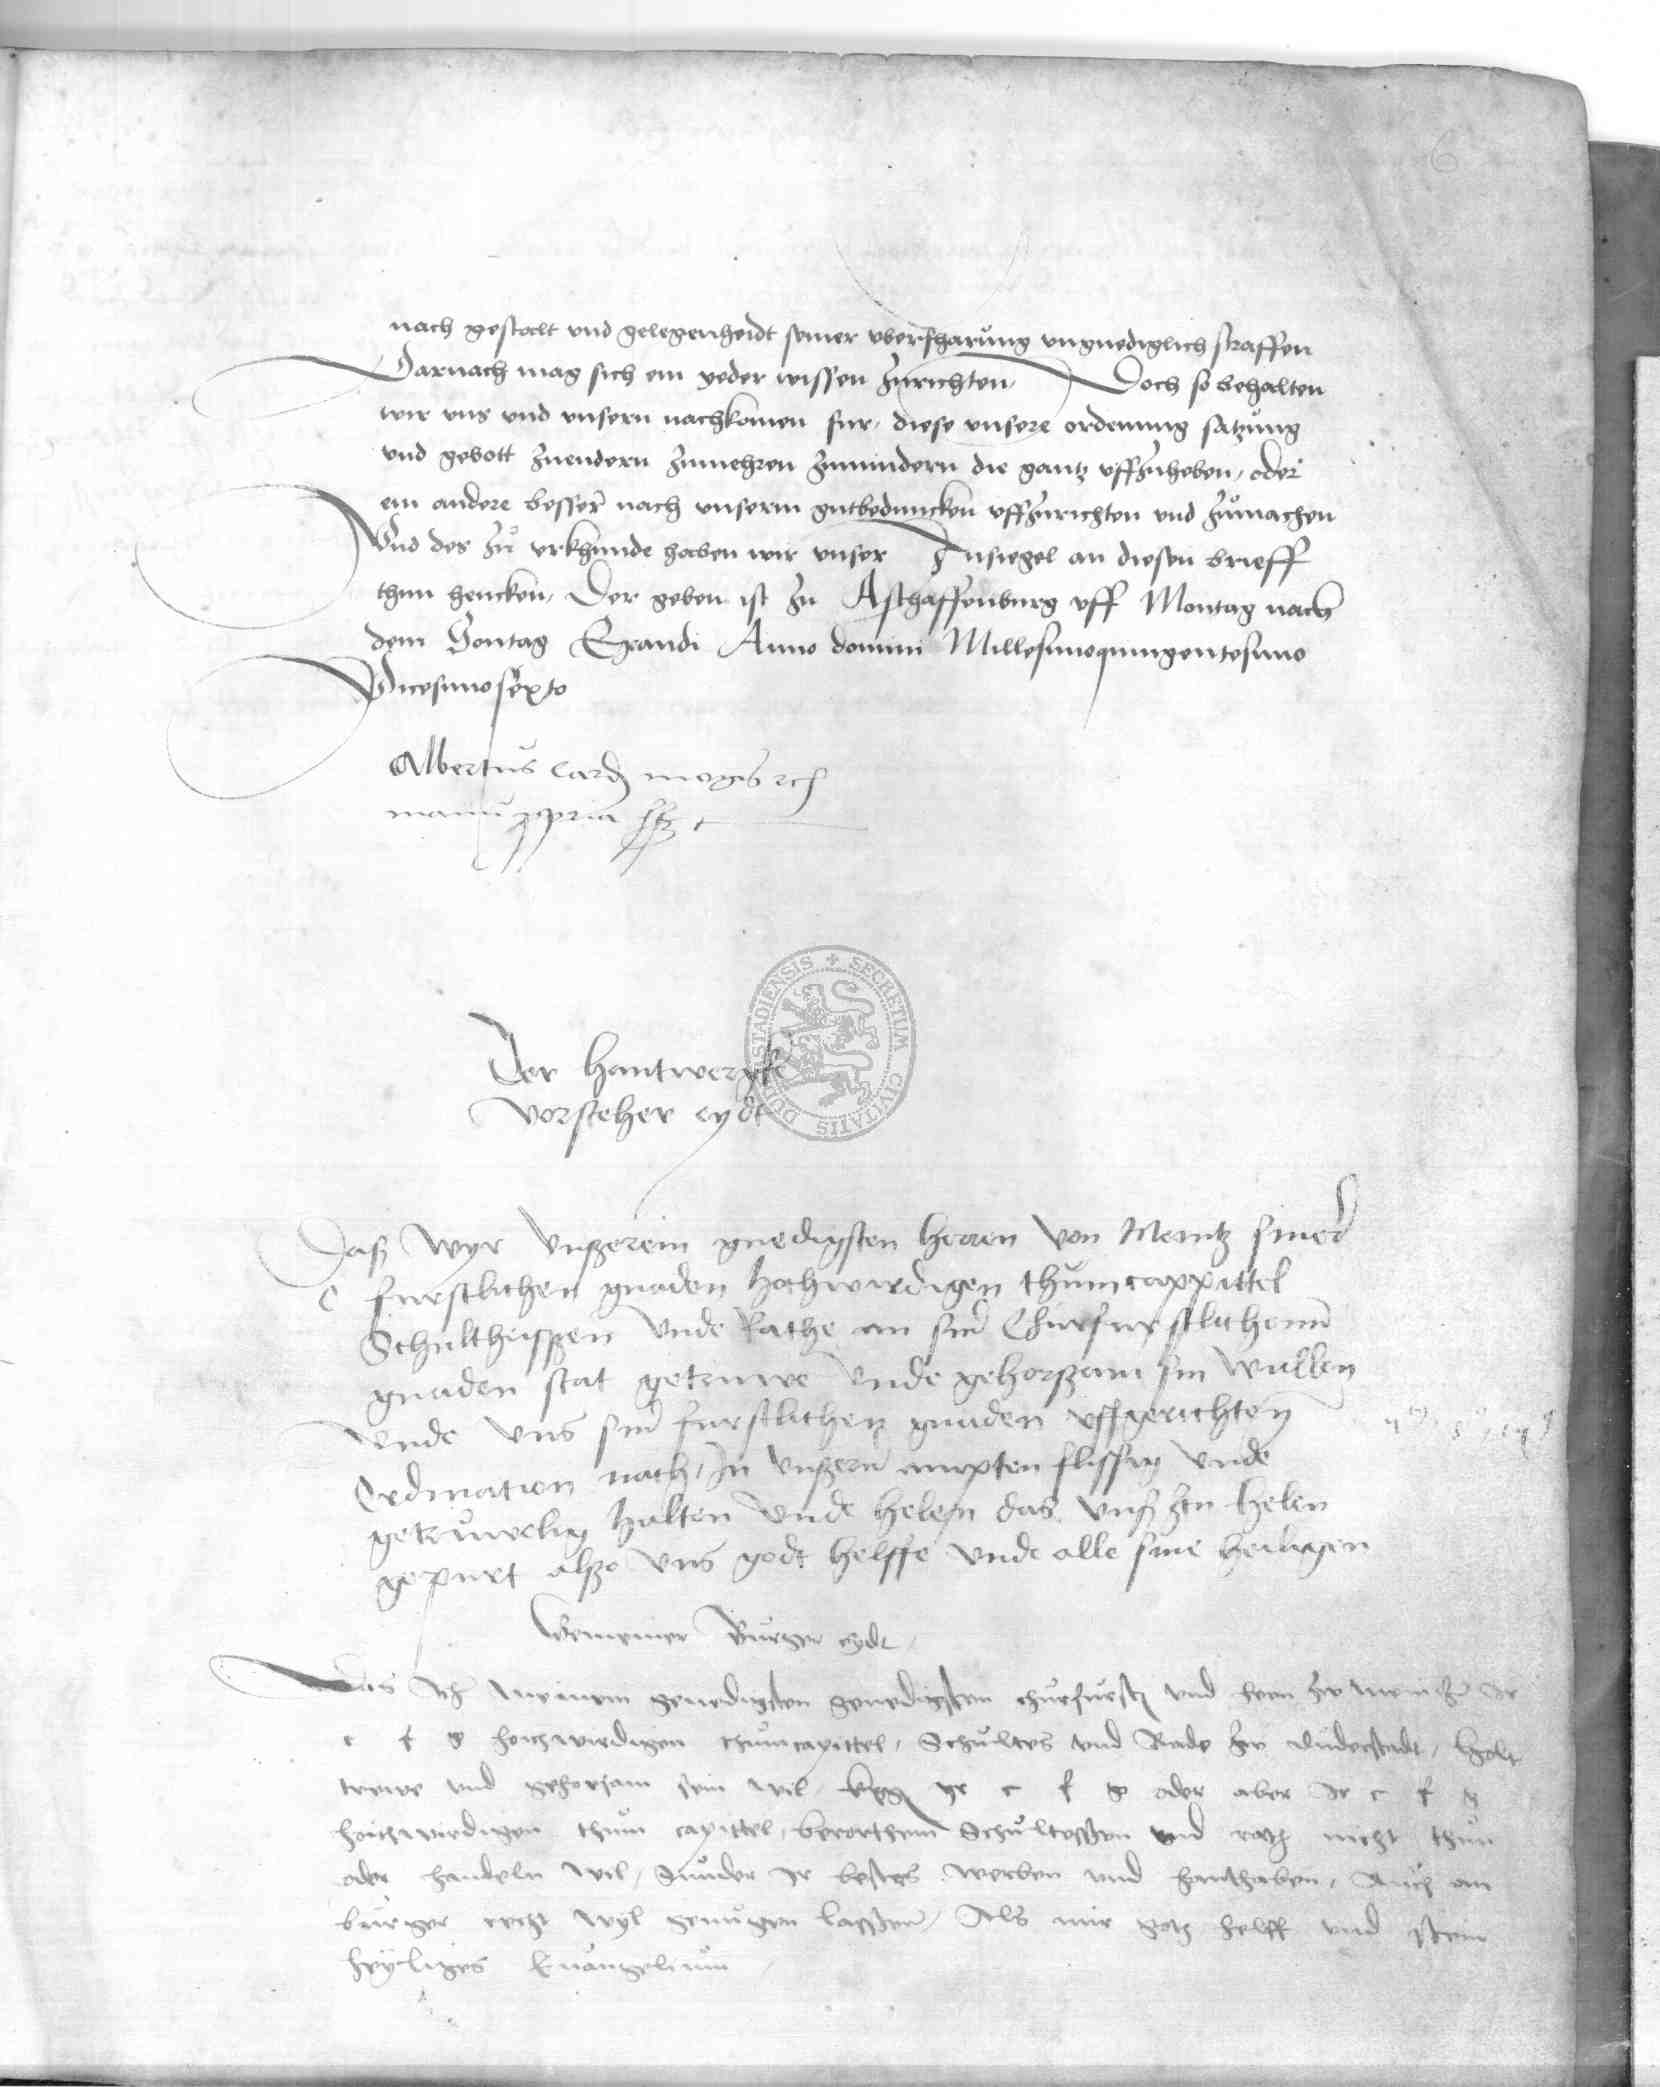 6
nach gestalt vnd gelegenheidt seiner vberfharung vngnediglich straffen
Darnach mag sich ein yeder wissen zurichten, Doch so behalten
wir vns vnd vnsern nachkomen fur, diese vnsere ordenung satzung
vnd gebott zuendern zumehren zumindern die gantz vffzuheben, oder
ein andere besser nach vnserm gutbeduncken vffzurichten vnd zumachen
Vnd des zu vrkhunde haben wir vnser Insiegel an diesen brieff
thun hencken, Der geben ist zu Aschaffenburg vff Montag nach
dem Sontag Exaudi Anno domini Millesimoquingentesimo
Vicesimosexto
Albertus Card mogu
manu ppria
SECRETUM CIVITATIS DUDERSTADIENSIS
Der hantwergke
vorsteher eydt
Daß wyr vnßerem gnedigsten herren von Mentz siner
C furstlichen gnaden hochwirdigen thumcappittel
Schultheissen vnde Rathe an siner Churfurstlichenn
gnaden stat getruwe vnde gehorßam sin wullen
vnde vns siner furstlichen gnaden vffgerichten
Ordination nach, In vnßern ampten flissig vnde
getruwelig halten vnde helen das vnß zcu helen
gepurt alßo vns godt helffe vnde alle sine heiligen
Gemeiner Burger eydt
Das Ich meinem genedigsten genedigsten churfursten vnd hern zu meintz Ir
c f g hochwirdigen thumcapittel, Schultes vnd Rade zu duderstadt, holt
trewe vnd gehorsam sein wil, yr c f g oder aber Ir c f g
hochwirdigen thum capittel, Schultessen vnd rath nicht thun
oder handeln wil, Sunder Ir bestes werben vnd hanthaben, Auch an
burger recht wyl genugen lassenn, Als mir goth helff vnd sein
heyliges Euangelium